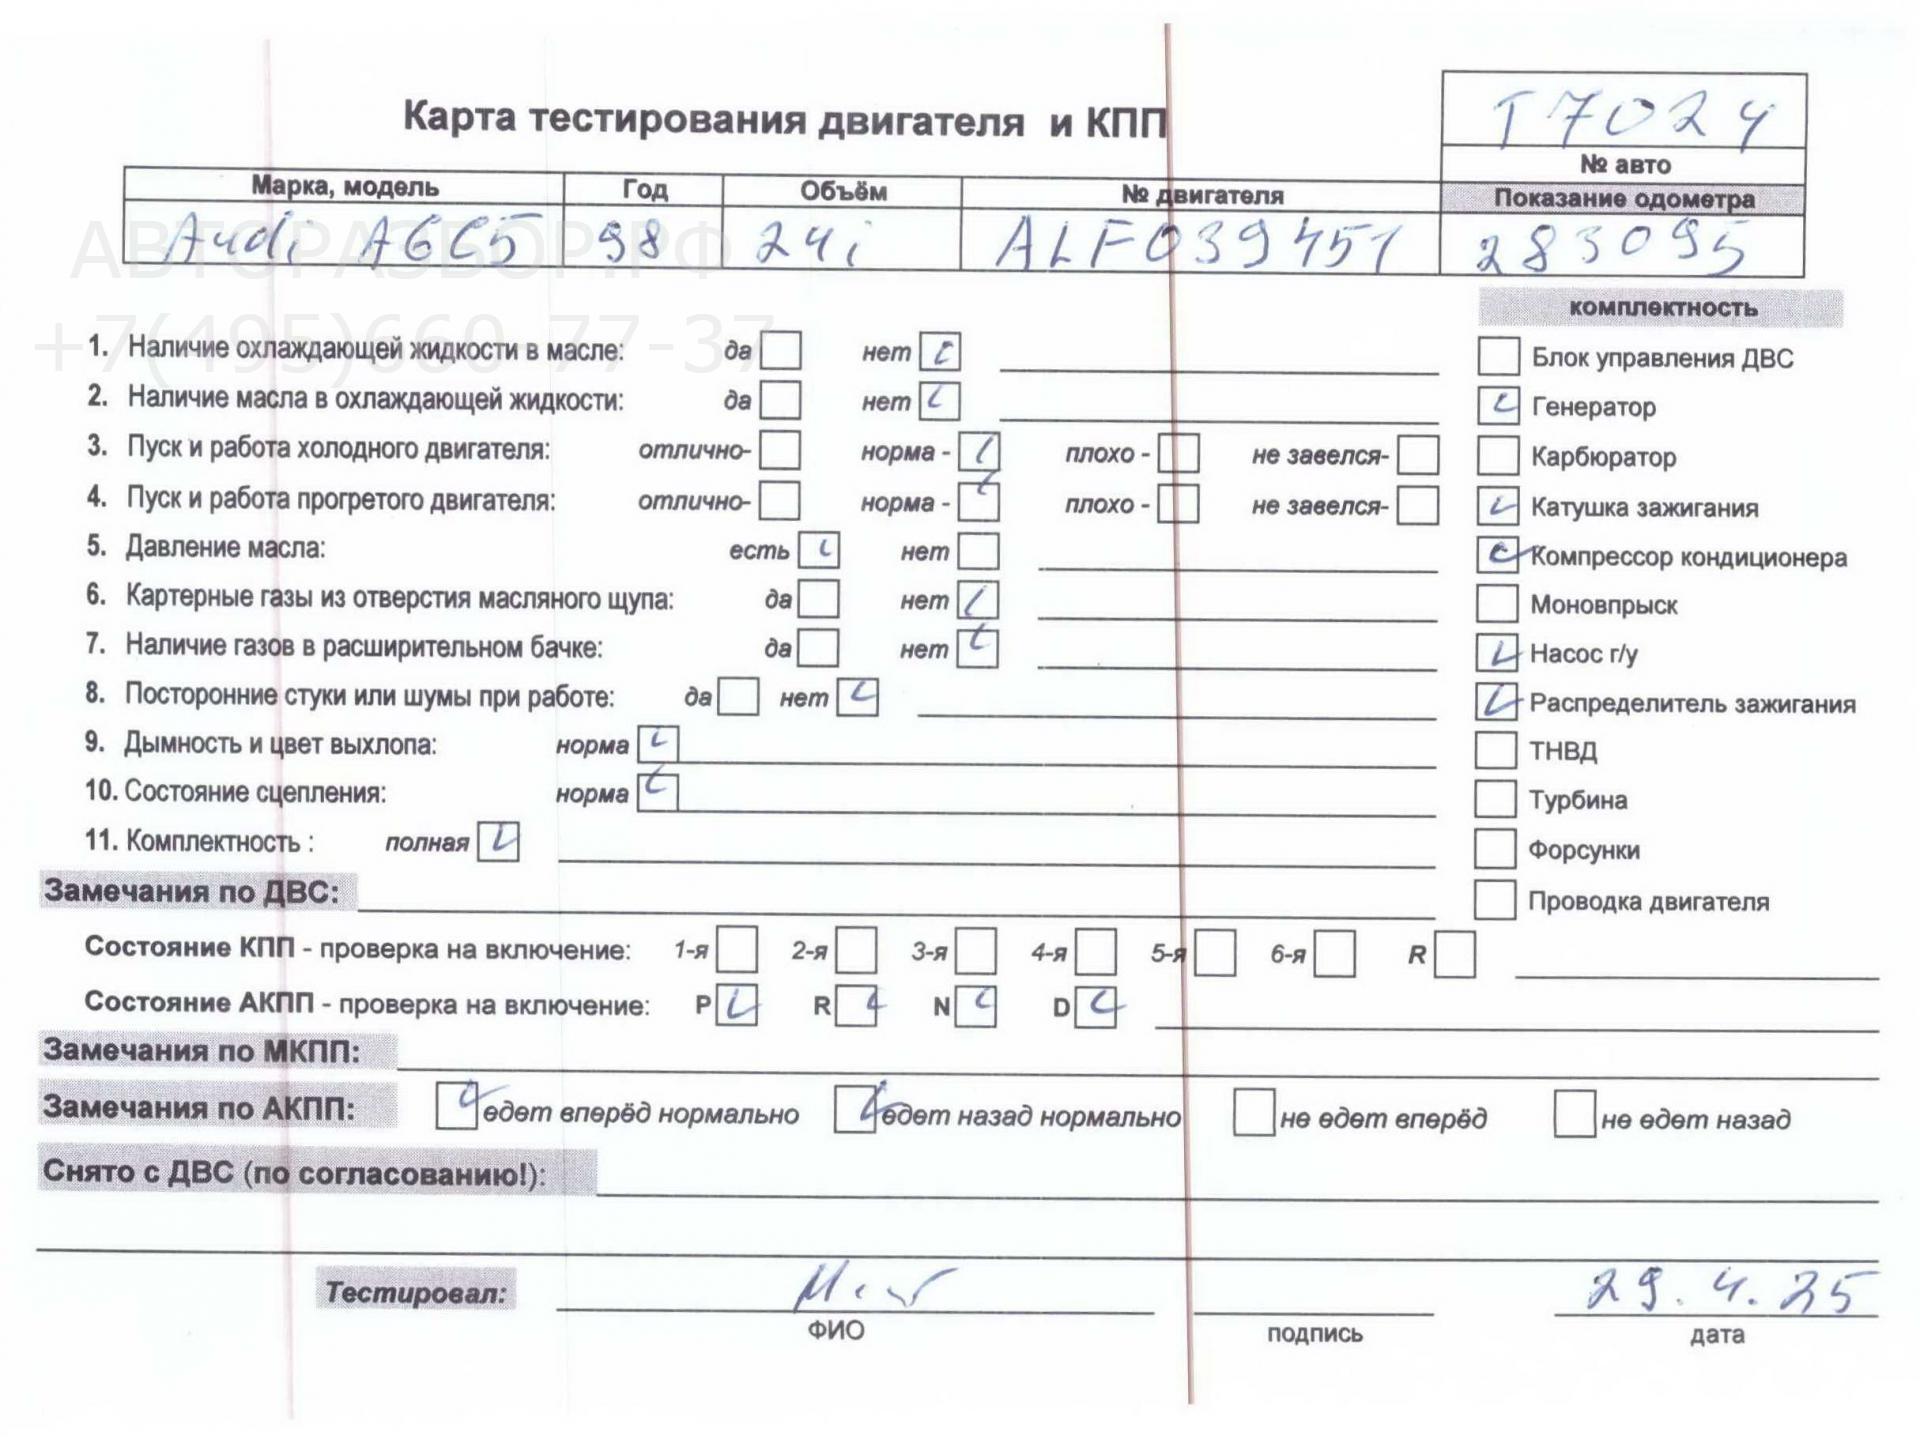 Карта тестирования двигателя и КПП
T7024
№ авто
Марка, модель Год Объём № двигателя Показание одометра
Audi A6C5 98 24i ALF039451 283095
АВТОРАЗБОР.РФ
+7(495)660-77-37
комплектность
1. Наличие охлаждающей жидкости в масле: да нет
Блок управления ДВС
2. Наличие масла в охлаждающей жидкости: да нет
Генератор
3. Пуск и работа холодного двигателя: отлично- норма - плохо - не завелся-
Карбюратор
4. Пуск и работа прогретого двигателя: отлично- норма - плохо - не завелся-
Катушка зажигания
5. Давление масла: есть нет
Компрессор кондиционера
6. Картерные газы из отверстия масляного щупа: да нет
Моновпрыск
7. Наличие газов в расширительном бачке: да нет
Насос г/у
8. Посторонние стуки или шумы при работе: да нет
Распределитель зажигания
9. Дымность и цвет выхлопа: норма
ТНВД
10. Состояние сцепления: норма
Турбина
11. Комплектность : полная
Форсунки
Замечания по ДВС:
Проводка двигателя
Состояние КПП - проверка на включение: 1-я 2-я 3-я 4-я 5-я 6-я R
Состояние АКПП - проверка на включение: P R N D
Замечания по МКПП:
Замечания по АКПП: едет вперёд нормально едет назад нормально не едет вперёд не едет назад
Снято с ДВС (по согласованию!):
Тестировал: 29.4.25
ФИО подпись дата